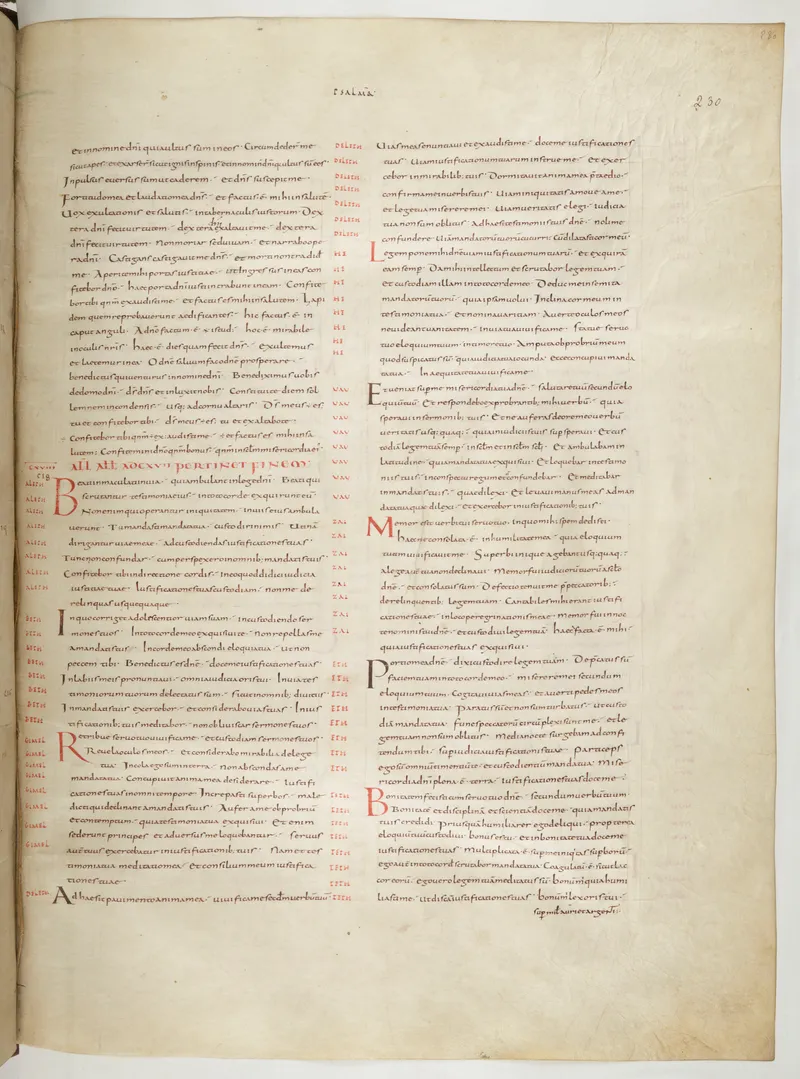 PSALMƆ
230
et in nomine dni quia ultus sum in eos · Circumdeder me
sicut apes · et exarser sicut ignis in spinis · et in nomine dni quia ultus sum eos ·
Inpulsus euersus sum ut caderem · et dns suscepit me ·
Fortitudo mea et laudatio mea dns · et factus ē mihi in salutē ·
Uox exultationis et salutis · in tabernaculis iustorum · Dex
tera dni fecit uirtutem · dextera dni exaltauit me · dextera
dni fecit uirtutem · Non moriar sed uiuam · et narrabo ope
ra dni · Castigans castigauit me dns · et morti non tradid
me · Aperite mihi portas iustitiae · ingressus in eas con
fitebor dno · haec porta dni iusti intrabunt in eam · Confite
bor tibi qm exaudisti me · et factus es mihi in salutem · Lapi
dem quem reprobauerunt aedificantes · hic factus ē in
caput anguli · A dno factum ē istud · hoc ē mirabile
in oculis nris · haec ē dies quam fecit dns · exultemus
et laetemur in ea · O dne saluum fac o dne prosperare ·
benedictus qui uenturus in nomine dni · Benediximus uobis
de domo dni · ds dns et inluxit nobis · Constituite diem sol
lemnem in condensis · usq; ad cornu altaris · Ds meus es
tu et confitebor tibi · ds meus es tu et exaltabo te ·
Confitebor tibi qm exaudisti me · et factus es mihi in sa
lutem · Confitemini dno qm bonus · qm in sctm misericordia ei ·
CXVIII ALL ALL AD CXVII PERTINET FINEM
Beati inmaculati in uia · qui ambulant in lege dni · Beati qui
scrutantur testimonia eius · in toto corde exquirunt eū
Non enim qui operantur iniquitatem · in uiis eius ambula
uerunt · Tu mandasti mandata tua · custodiri nimis · Utinā
dirigantur uiae meae · ad custodiendas iustificationes tuas ·
Tunc non confundar · cum perspexero in omnib; mandatis tuis ·
Confitebor tibi in directione cordis · in eo quod didici iudicia
iustitiae tuae · Iustificationes tuas custodiam · non me de
relinquas usquequaque ·
In quo corriget adolescentior uiam suam · in custodiendo ser
mones tuos · In toto corde meo exquisiui te · non repellas me
a mandatis tuis · In corde meo abscondi eloquia tua · ut non
peccem tibi · Benedictus es dne · doce me iustificationes tuas ·
In labiis meis pronuntiaui · omnia iudicia oris tui · In uia tes
timoniorum tuorum delectatus sum · sicut in omnib; diuitiis ·
In mandatis tuis exercebor · et considerabo uias tuas · In ius
tificationib; tuis meditabor · non obliuiscar sermones tuos ·
Retribue seruo tuo uiuifica me · et custodiam sermones tuos ·
Reuela oculos meos · et considerabo mirabilia de lege
tua · Incola ego sum in terra · non abscondas a me
mandata tua · Concupiuit anima mea desiderare · iustifi
cationes tuas in omni tempore · Increpasti superbos · male
dicti qui declinant a mandatis tuis · Aufer a me obprobriū
et contemptum · quia testimonia tua exquisiui · Et enim
sederunt principes et aduersus me loquebantur · seruus
autē tuus exercebatur in iustificationib; tuis · Nam et tes
timonia tua meditatio mea · et consilium meum iustifica
tiones tuae ·
Adhaesit pauimento anima mea · uiuifica me secdm uerbū tuū ·
Uias meas enuntiaui et exaudisti me · doce me iustificationes
tuas · Uiam iustificationum tuarum instrue me · et exer
cebor in mirabilib; tuis · Dormitauit anima mea prae taedio ·
confirma me in uerbis tuis · Uiam iniquitatis amoue a me ·
et lege tua miserere mei · Uiam ueritatis elegi · iudicia
tua non sum oblitus · Adhaesi testimoniis tuis dne · noli me
confundere · Uiam mandatorū tuorū cucurri · cū dilatasti cor meū ·
Legem pone mihi dne uiam iustificationum tuarū · et exquirā
eam semp · Da mihi intellectum et scrutabor legem tuam ·
et custodiam illam in toto corde meo · Deduc me in semita
mandatorū tuorū · quia ipsam uolui · Inclina cor meum in
testimonia tua · et non in auaritiam · Auerte oculos meos
ne uideant uanitatem · in uia tua uiuifica me · Statue seruo
tuo eloquium tuum · in timore tuo · Amputa obprobriū meum
quod suspicatus sū · quia iudicia tua iocunda · Ecce concupiui manda
ta tua · In aequitate tua uiuifica me ·
Et ueniat sup me misericordia tua dne · salutare tuū secundū elo
quiū tuū · Et respondebo exprobrantib; mihi uerbū · quia
speraui in sermonib; tuis · Et ne auferas de ore meo uerbū
ueritatis usq; quaq; · quia in iudiciis tuis supsperaui · Et cus
todiā legem tuā semp · in sctm et in sctm scti · Et ambulabam in
latitudine · quia mandata tua exquisiui · Et loquebar in testimo
niis tuis · in conspectu regum et non confundebar · Et meditabar
in mandatis tuis · quae dilexi · Et leuaui manus meas ad man
data tua quae dilexi · et exercebor in iustificationib; tuis ·
Memor esto uerbi tui seruo tuo · in quo mihi spem dedisti ·
haec me consolata ē · in humilitate mea · quia eloquium
tuum uiuificauit me · Superbi inique agebant usq; quaq; ·
a lege autē tua non declinaui · Memor fui iudiciorū tuorū a scto
dne · et consolatus sum · Defectio tenuit me p peccatorib; ·
derelinquentib; legem tuam · Cantabiles mihi erant iustifi
cationes tuae · in loco peregrinationis meae · Memor fui in noc
te nominis tui dne · et custodiui legem tuā · haec facta ē mihi ·
quia iustificationes tuas exquisiui ·
Portio mea dne · dixi custodire legem tuam · Deprecatus sū
faciem tuam in toto corde meo · miserere mei secundum
eloquium tuum · Cogitaui uias meas · et auerti pedes meos
in testimonia tua · Paratus sū et non sum turbatus · ut custo
diā mandata tua · Funes peccatorū circūplexi sunt me · et le
gem tuam non sum oblitus · Media nocte surgebam ad confi
tendum tibi · sup iudicia iustificationis tuae · Particeps
ego sū omniū timentiū te · et custodientiū mandata tua · Mise
ricordia dni plena ē terra · iustificationes tuas doce me ·
Bonitatem fecisti cum seruo tuo dne · secundum uerbū tuum
Bonitatē et disciplinā et scientiā doce me · quia mandatis
tuis credidi · Priusquā humiliarer ego deliqui · propterea
eloquiū tuū custodiui · bonus es tu · et in bonitate tua doce me
iustificationes tuas · Multiplicata ē sup me iniqtas supborū ·
ego autē in toto corde scrutabor mandata tua · Coagulatū ē sicut lac
cor eorū · ego uero legem tuā meditatus sū · bonū mi quia humi
liasti me · ut discā iustificationes tuas · bonū mi lex oris tui ·
sup milia auri et argenti :